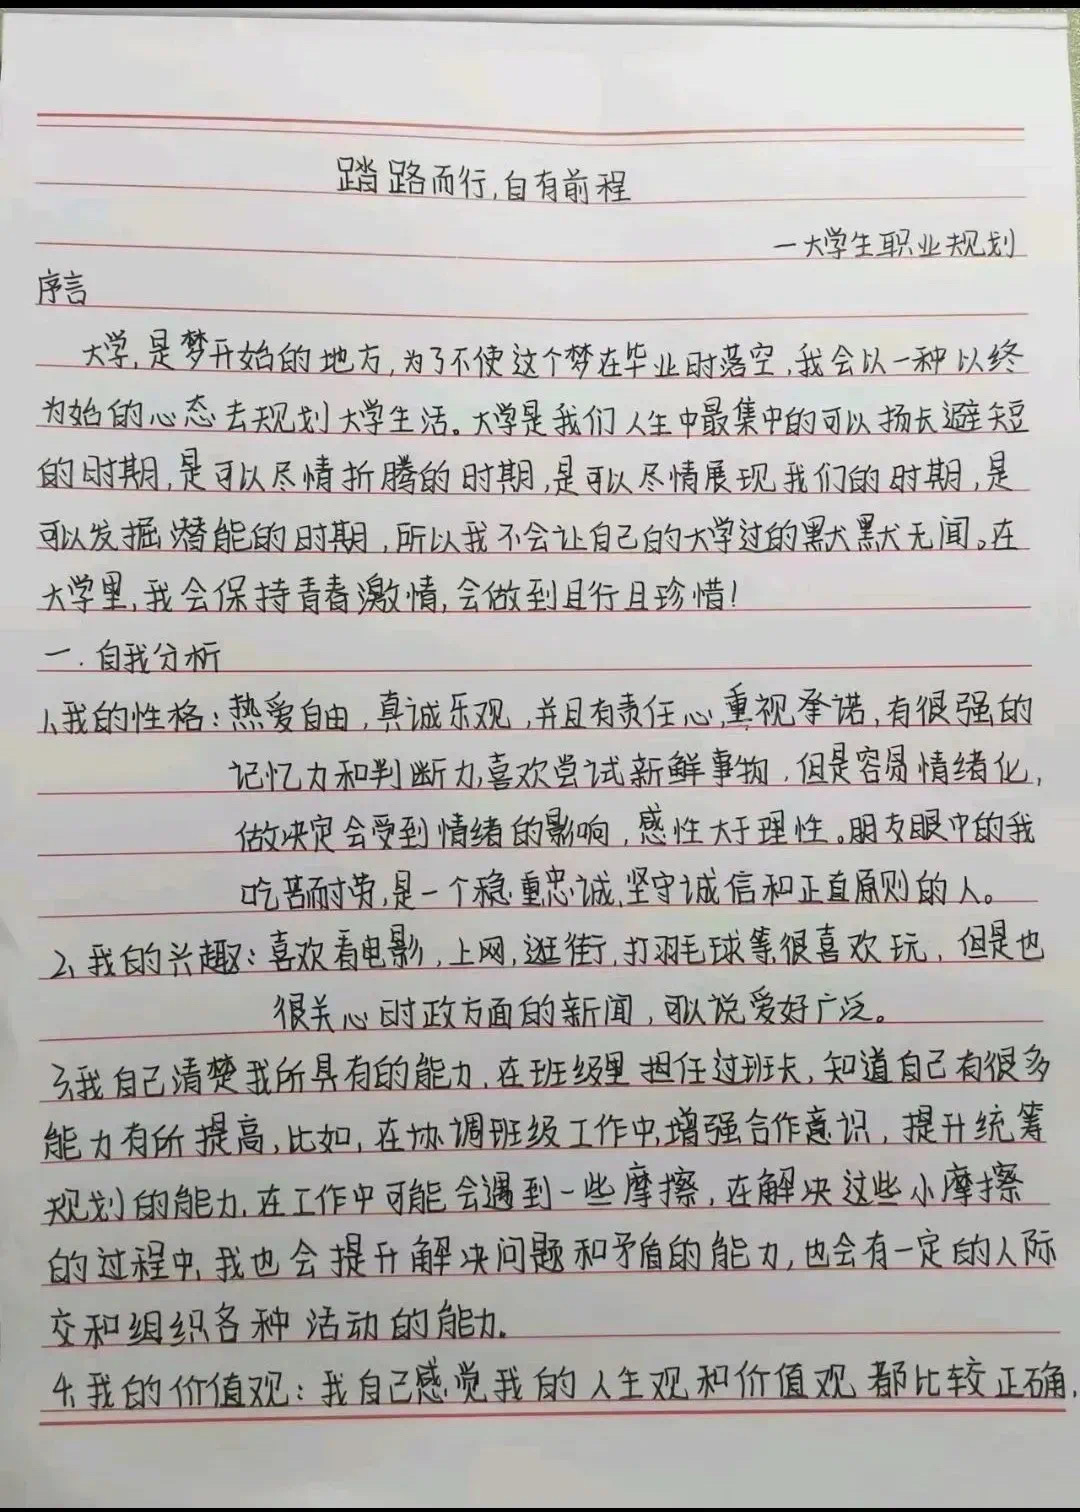 踏路而行,自有前程
一大学生职业规划
序言
大学,是梦开始的地方,为了不使这个梦在毕业时落空,我会以一种以终
为始的心态去规划大学生活。大学是我们人生中最集中的可以扬长避短
的时期,是可以尽情折腾的时期,是可以尽情展现我们的时期,是
可以发掘潜能的时期,所以我不会让自己的大学过的默默无闻。在
大学里,我会保持青春激情,会做到且行且珍惜!
一.自我分析
1、我的性格:热爱自由,真诚乐观,并且有责任心,重视承诺,有很强的
记忆力和判断力,喜欢尝试新鲜事物,但是容易情绪化,
做决定会受到情绪的影响,感性大于理性。朋友眼中的我
吃苦耐劳,是一个稳重忠诚,坚守诚信和正直原则的人。
2、我的兴趣:喜欢看电影,上网,逛街,打羽毛球等,很喜欢玩,但是也
很关心时政方面的新闻,可以说爱好广泛。
3、我自己清楚我所具有的能力,在班级里担任过班长,知道自己有很多
能力有所提高,比如,在协调班级工作中,增强合作意识,提升统筹
规划的能力,在工作中可能会遇到一些摩擦,在解决这些小摩擦
的过程中,我也会提升解决问题和矛盾的能力,也会有一定的人际
交和组织各种活动的能力。
4、我的价值观:我自己感觉我的人生观和价值观都比较正确,